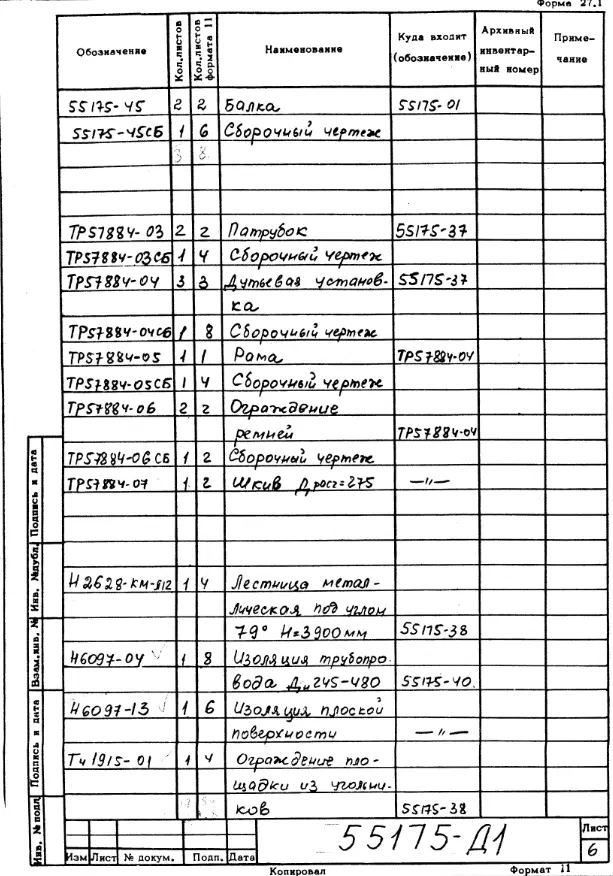 Форма 27.1
Обозначение Кол.листов Кол.листов формата 11 Наименование Куда входит (обозначение) Архивный инвентарный номер Примечание
55175-45 2 2 Балка 55175-01
55175-45СБ 1 6 Сборочный чертеж
3 8
ТР57884-03 2 2 Патрубок 55175-37
ТР57884-03СБ 1 4 Сборочный чертеж
ТР57884-04 3 3 Дутьевая установ- 55175-37
ка
ТР57884-04СБ 1 8 Сборочный чертеж
ТР57884-05 1 1 Рама ТР57884-04
ТР57884-05СБ 1 4 Сборочный чертеж
ТР57884-06 2 2 Ограждение
ремней ТР57884-04
ТР57884-06СБ 1 2 Сборочный чертеж
ТР57884-07 1 2 Шкив Драсч=275 —"—
1 4 Лестница метал-
лическая под углом
79° Н=3900мм 55175-38
Н6097-04 1 8 Изоляция трубопро-
вода Дн245-480 55175-40.
Н6097-13 1 6 Изоляция плоской
поверхности —"—
Тч1915-01 1 4 Ограждение пло-
щадки из угольни-
ков 55175-38
Инв. № подл. Подпись и дата Взам.инв. № Инв. №дубл. Подпись и дата
55175-Д1
Лист
6
Изм Лист № докум. Подп. Дата
Копировал Формат 11